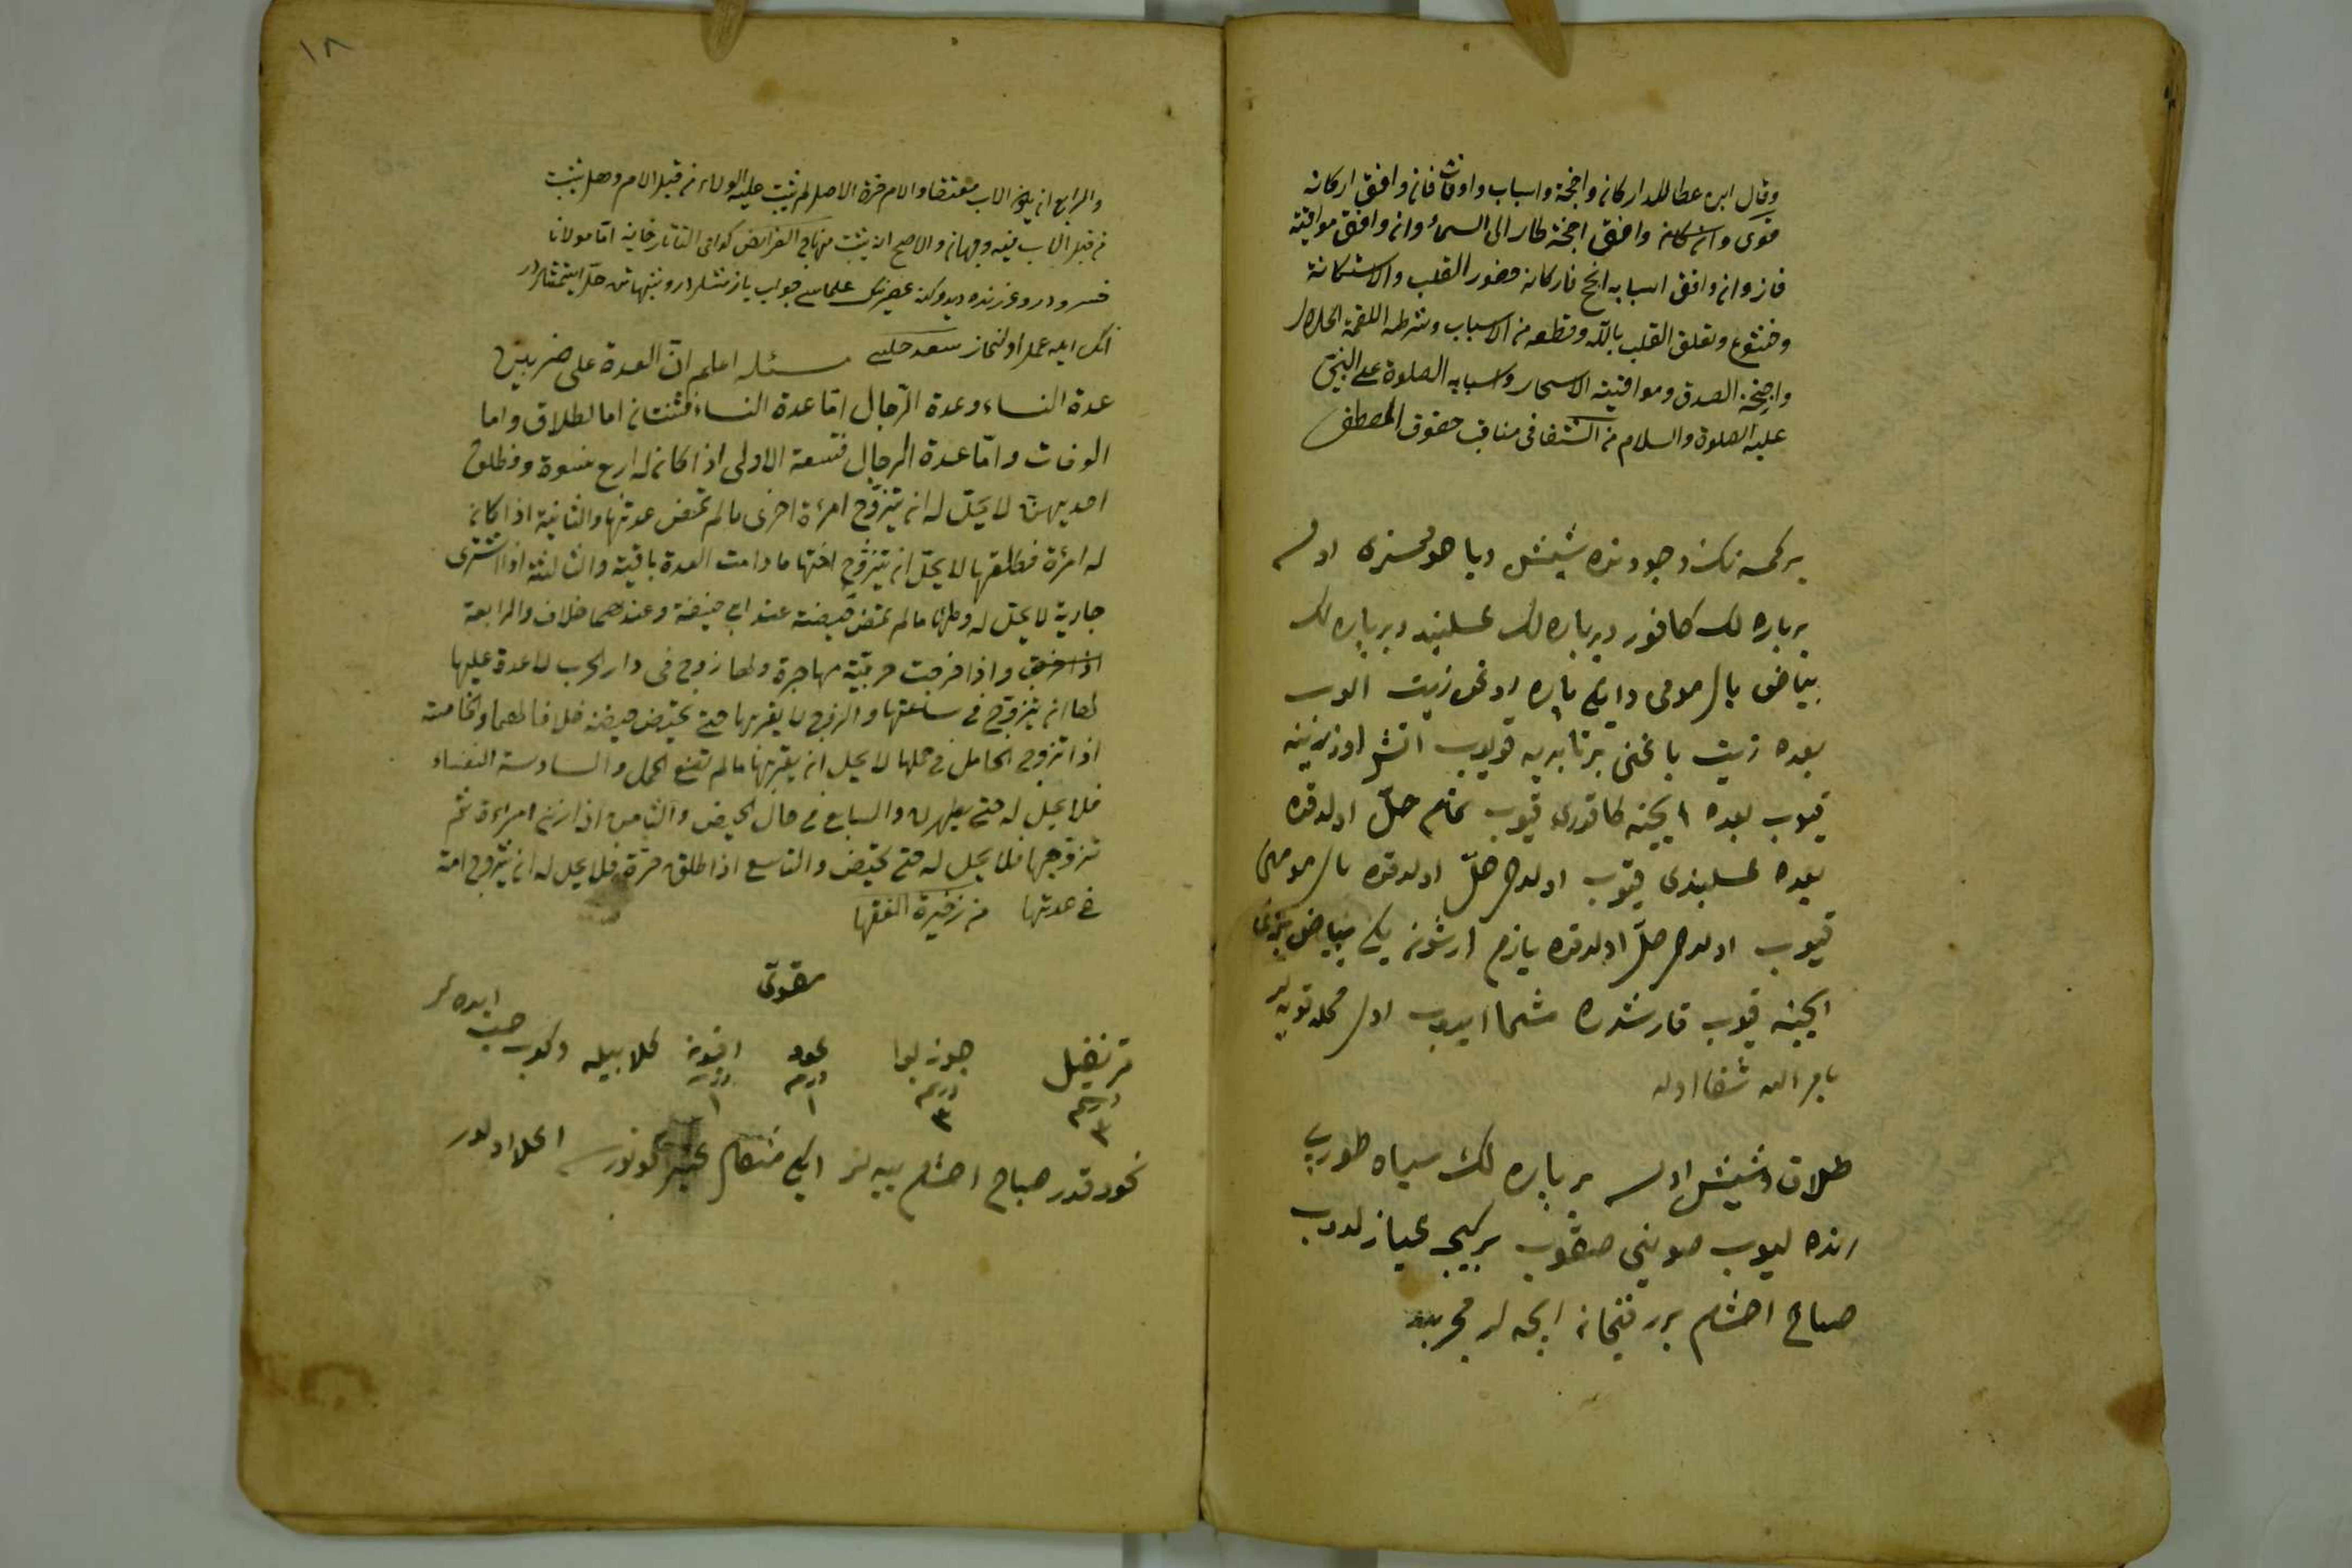 وقال ابن عطا للدعا اركان واجنحة واسباب واوقات فان وافق اركانه
قوى وان وافق اجنحته طار الى السماء وان وافق مواقيته
فاز وان وافق اسبابه انجح فاركانه حضور القلب والاستكانة
وخشوع وتعلق القلب بالله وقطعه من الاسباب وشرطه اللقمة الحلال
واجنحته الصدق ومواقيته الاسحار واسبابه الصلوة على النبي
عليه الصلوة والسلام من الشفا فى مناقب حقوق المصطفى
بر كمسنه نك وجودنده شيش ويا اولسه
بر پاره لك كافور وبر پاره لك وبر پاره لك
بياض بال مومى وايكى پاره لوغن زيت الوب
بعده زيت ياغنى بر قويوب اتش اوزرينه
قيوب بعده ايچنه كافورى قيوب تمام حلّ اولدقده
بعده قيوب اولدخى حلّ اولدقده بال مومنى
قيوب اولدخى حلّ اولدقده يارم ارشون يكى بياض بزى
ايچينه قيوب قارشدره مشمع ايدوب اول محله قويه لر
بامر الله شفا اوله
طلاق شيش اولسه بر پاره لك سياه طورپ
رنده ليوب صوينى صقوب بر كيجه عيازلدوب
صباح اخشام برر فنجان ايچه لر مجربدر
١٨
والرابع ان يكون الاب معتقا والام حرة الاصل لم يثبت عليه الولاء من قبل الام وهل يثبت
من قبل الاب فيه وجهان والاصح ان يثبت فى الفرايض كذا فى التاتارخانية امّا مولانا
خسرو درر وغررنده عصرنك علماسى جواب يازمشلردر
انك ايله عمل اولنماز سعدى چلبى مسئله اعلم انّ العدة على ضربين
عدة النساء وعدة الرّجال امّا عدة النساء فثنتان اما لطلاق واما
الوفات وامّا عدة الرجال فتسعة الاولى اذا كان له اربع نسوة وطلق
احديهنّ لا يحلّ له ان يتزوّج امرءة اخرى ما لم تمض عدتها والثانية اذا كان
له امرءة فطلقها لا يحلّ ان يتزوّج اختها ما دامت العدة باقية والثالثة اذا اشترى
جارية لا يحلّ له وطئها ما لم تمض حيضة عند ابى حنيفة وعندهما خلاف والرابعة
واذا خرجت حربيّة مهاجرة ولها زوج فى دار الحرب لا عدة عليها
لها ان يتزوّج فى ساعتها والزوج لا يقربها حتى تحيض حيضة خلافا لهما والخامسة
اذا تزوج الحامل فى حملها لا يحل ان يقربها ما لم تضع الحمل والسادسة النفساء
فلا يحل له حتى يطهرن والسابع فى حال الحيض والثامن اذا زنى امراءة ثم
تزوجها فلا يحل له حتى تحيض والتاسع اذا طلق حرة فلا يحل له ان يتزوج امة
فى عدتها من ذخيرة الفقها
مقوى
قرنفيل جوز بوا عود افيون كلابيله دوكوب حب ايده لر
درهم ٣ درهم ٣ درهم ١ درهم ١
نخود قدر صباح اخشام ييه لر ايكى مثقال عنبر قونورسه اعلا اولور